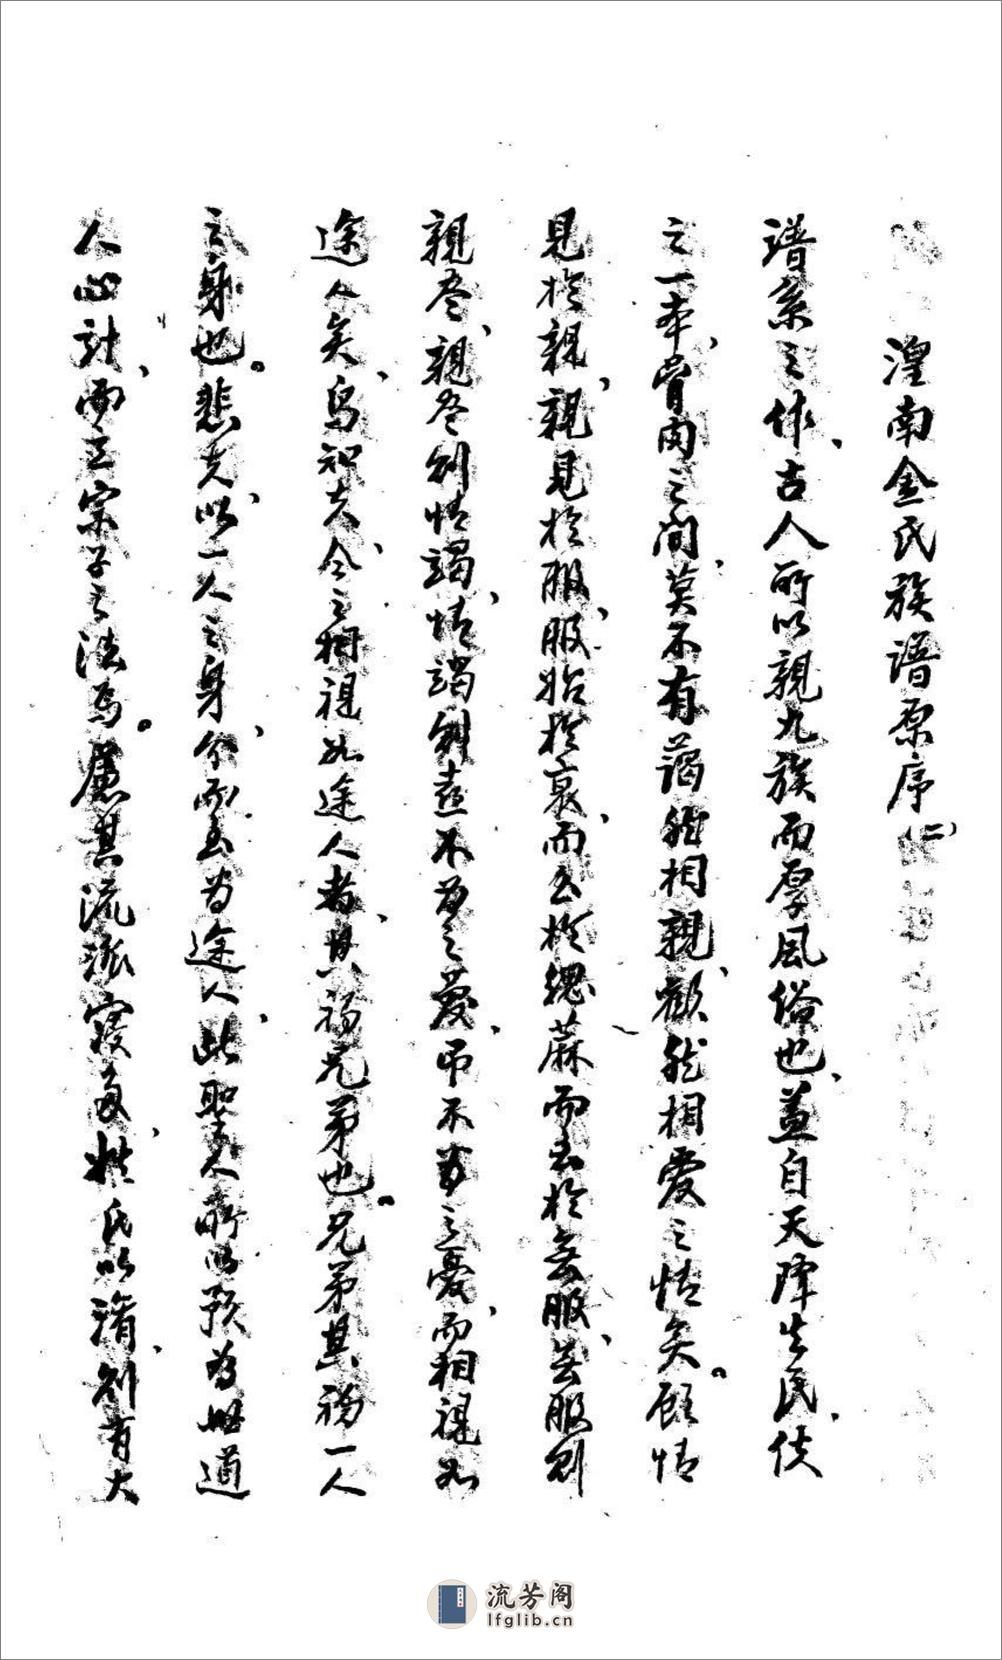 湟南金氏族譜原序(二)
譜系之作、古人所以親九族而厚風俗也、蓋自天降生民、使
之一本、骨肉之間、莫不有藹然相親、歡然相愛之情矣。顧情
見於親、親見於服、服始於衰、而至於緦蔴而至於無服、無服則
親盡、親盡則情竭、情竭則喜不為之慶、弔不為之憂、而相視如
途人矣、烏知夫、今之相視如途人者、其初兄弟也。兄弟其初一人
之身也。悲夫、以一人之身、分而至為途人、此聖人所以預為世道
人心計、而立宗子之法焉。慮其流派寖多、姓氏以淆、則有大
流芳阁
lfglib.cn